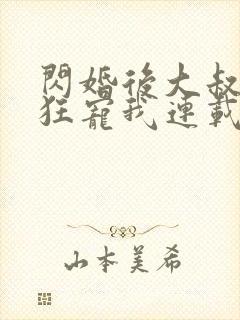 閃婚後大叔
狂寵我連載
山本美希